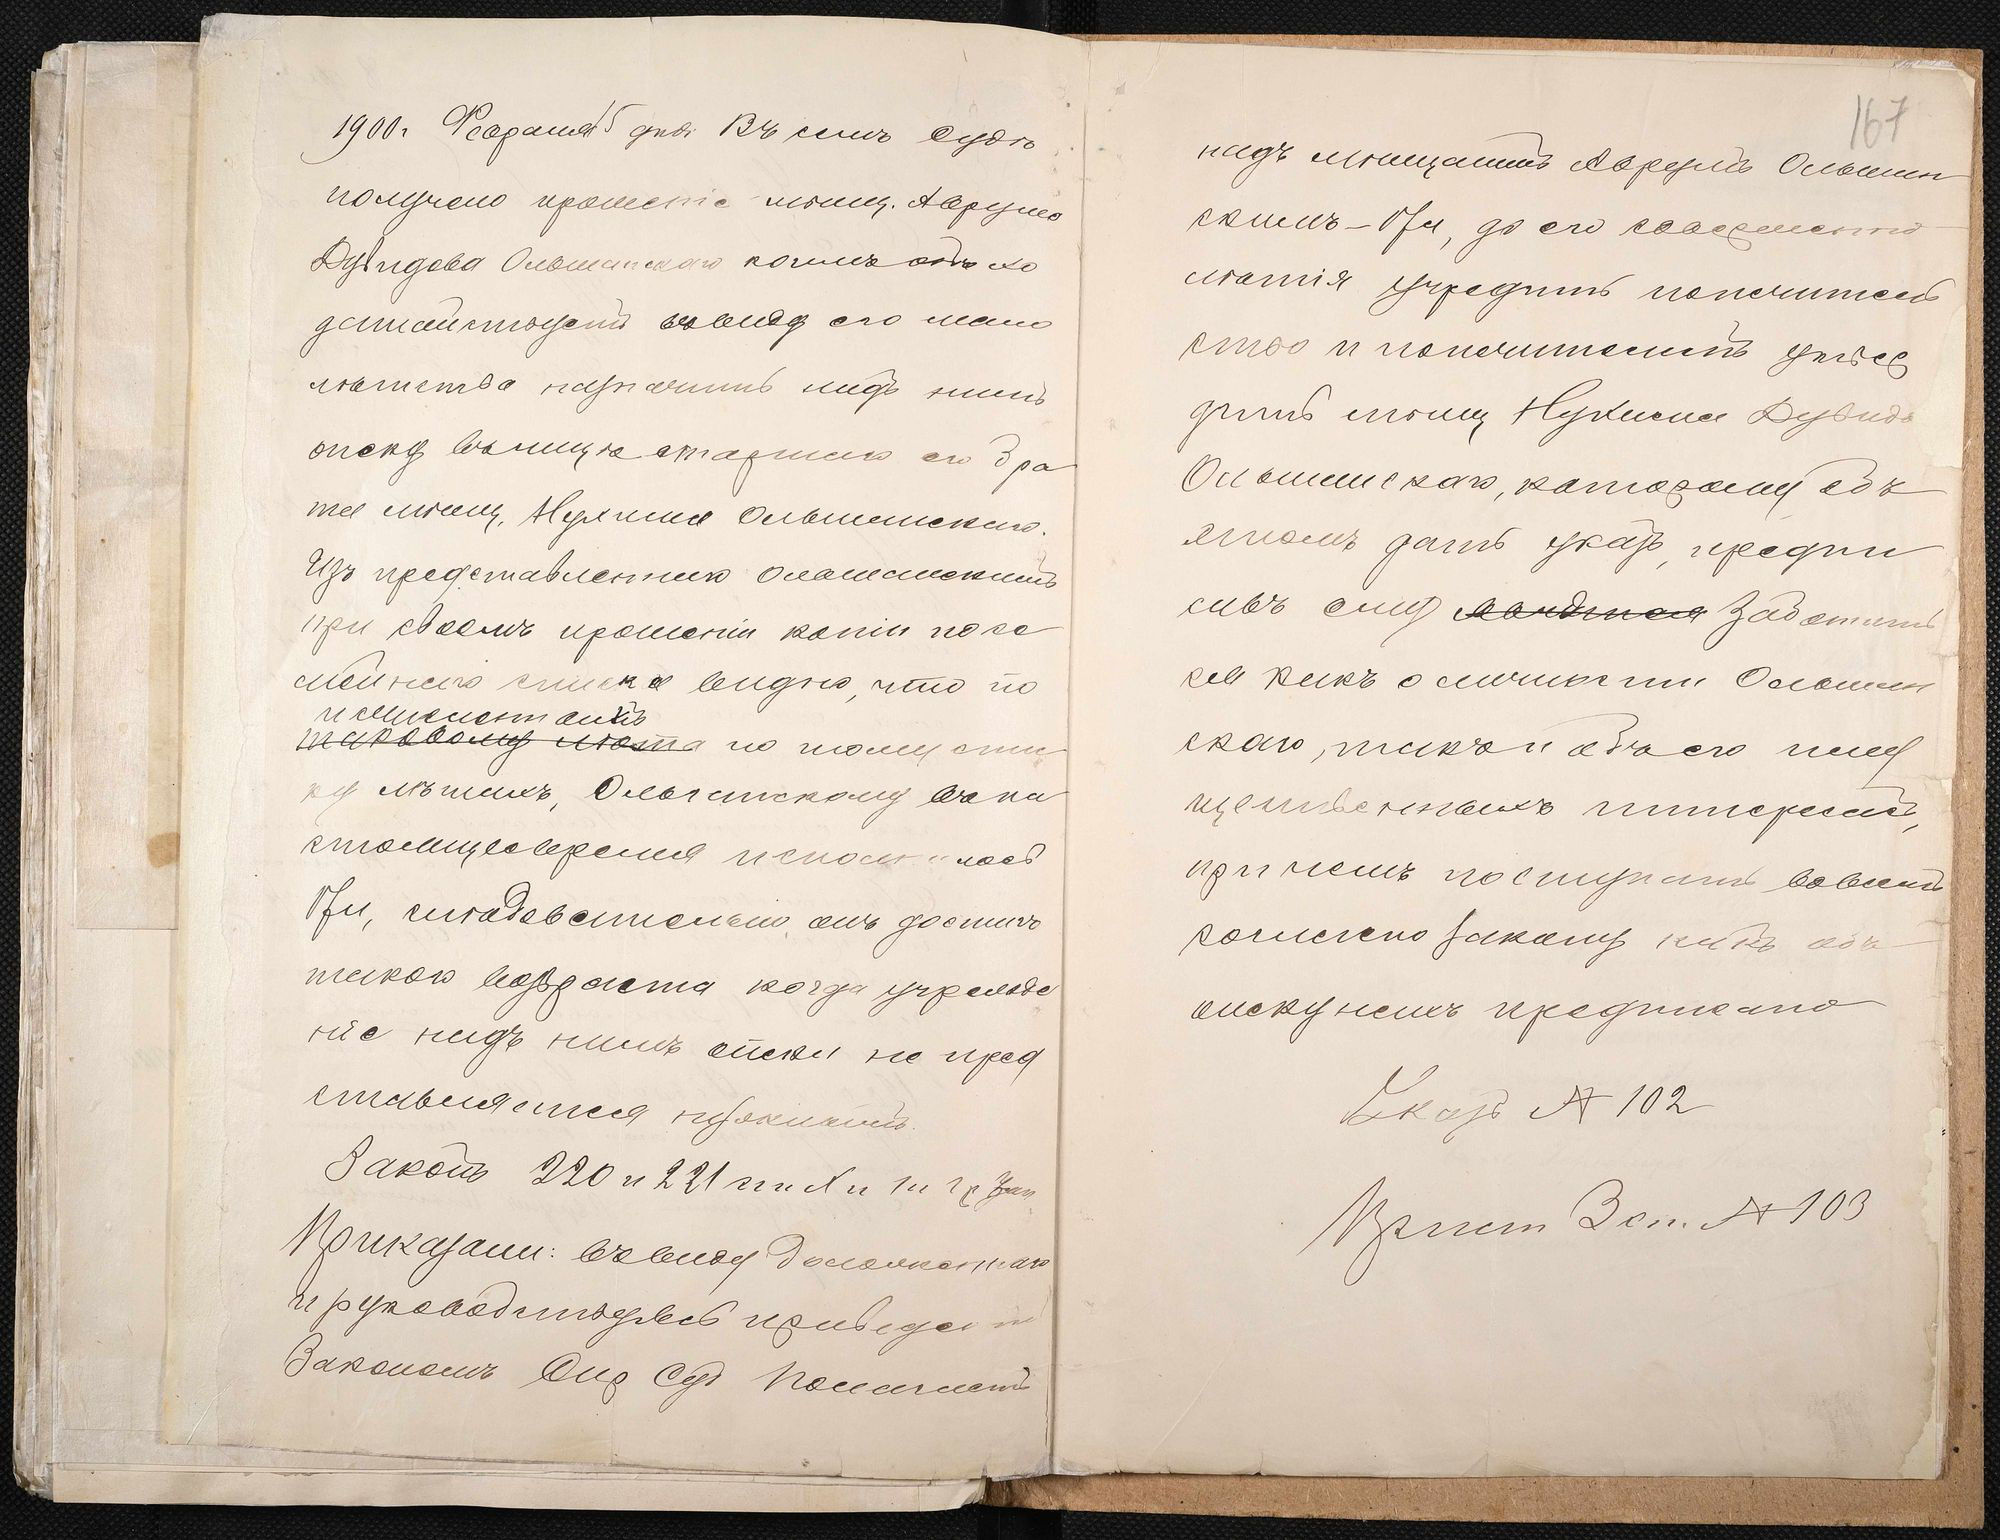 1900г Февраля 15 дня Въ семъ Судѣ
получено прошеніе мѣщ. Аврума
Дувидова Ольшанскаго коимъ онъ хо
датайствуетъ въ виду его мало
лѣтства назначить надъ нимъ
опеку въ лицѣ старшаго его бра
та мѣщ. Нухима Ольшанскаго.
Изъ представленной Ольшанскимъ
при своемъ прошеніи копіи посе
мейнаго списка видно, что по
исчисленіи
таковому лѣта по тому спи
ку лѣтамъ, Ольшанскому въ на
стоящее время исполнилось
17 л, слѣдовательно онъ достигъ
такого возраста когда учрежде
ніе надъ нимъ опеки не пред
ставляется нужнымъ.
Законъ 220 и 221 ст X т 1 ч Гр Зак
Приказали: въ виду доложеннаго
и руководствуясь приведен
Закономъ Сир Судъ Полагаетъ
167
надъ мѣщаниномъ Аврумъ Ольшан
скимъ – 17 л, до его совершенно
лѣтія учредить попечитель
ство и попечителемъ утвер
дить мѣщ Нухима Дувидов
Ольшанскаго, которому объ
этомъ дать указъ, предпи
савъ ему заботить
ся какъ о личности Ольшан
скаго, такъ и объ его иму
щественныхъ интересахъ,
при чемъ поступать во всемъ
согласно закону какъ объ
опекунахъ предписано
Указъ № 102
Прист 3 ст. № 103